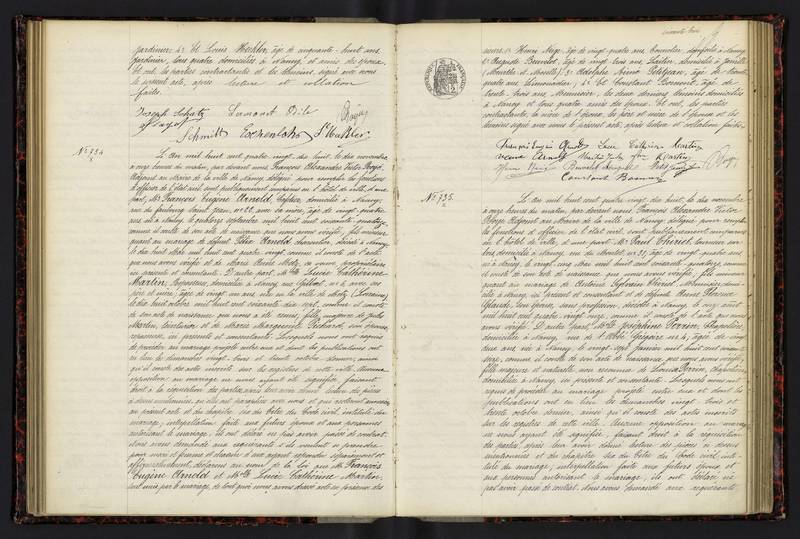 jardinier, 4° et Louis Weckler, âgé de cinquante-huit ans,
jardinier, tous quatre domiciliés à Nancy, et amis des époux.
Et ont, les parties contractantes et les témoins, signé avec nous
le présent acte, après lecture et collation
faites.
Joseph Schatz
Schmitt
N° 734
L'an mil huit cent quatre vingt dix huit, le dix novembre,
à onze heures du matin, par devant nous, François Alexandre Victor
Adjoint au Maire de la ville de Nancy, délégué pour remplir les fonctions
d'officier de l'état civil, sont publiquement comparus en l'hôtel de ville, d'une
part, Mr François Eugène Arnold, domicilié à Nancy,
rue du faubourg Saint Jean, n° 22, avec sa mère, âgé de vingt-quatre
ans, né à Nancy, le septembre mil huit cent soixante-quatorze,
comme il conste de son acte de naissance que nous avons vérifié, fils mineur
quant au mariage de défunt Félix Arnold, charpentier, décédé à Nancy,
le dix huit mai mil huit cent quatre vingt, comme il conste de l'acte
que nous avons vérifié et de Marie Anne Metz, sa veuve, propriétaire,
ici présente et consentante. D'autre part, Melle Lucie Catherine
Martin, domiciliée à Nancy, rue Gilbert, n° 4, avec ses
père et mère, âgée de vingt un ans, née en la ville de Metz (Lorraine),
le dix octobre mil huit cent soixante dix sept, comme il conste
de son acte de naissance qui nous a été remis, fille majeure de Jules
Martin, et de Marie Marguerite Pichard, son épouse,
ici présents et consentants. Lesquels nous ont requis
de procéder au mariage projeté entre eux et dont les publications ont
eu lieu les dimanches vingt trois et trente octobre dernier, ainsi
qu'il conste des actes inscrits sur les registres de cette ville. Aucune
opposition au mariage ne nous ayant été signifiée, faisant
droit à la réquisition des parties, après leur avoir donné lecture des pièces
ci-dessus mentionnées,
au présent acte et du chapitre six du titre du Code civil, intitulé du
mariage, interpellation faite aux futurs époux et aux personnes
autorisant le mariage, ils ont déclaré ne pas avoir passé de contrat.
Nous avons demandé aux requérants s'ils veulent se prendre
pour mari et femme et chacun d'eux ayant répondu séparément et
affirmativement, déclarons au nom de la loi que Mr François
Eugène Arnold et Melle Lucie Catherine Martin
sont unis par le mariage, de tout quoi nous avons dressé acte en présence des
sieurs 1° Henri âgé de vingt-quatre ans, domicilié à Nancy,
2° Auguste âgé de trente trois ans, domicilié à
(Meurthe et Moselle), 3° Adolphe Petitjean, âgé de trente
quatre ans, 4° et Constant âgé de
trente-trois ans, Menuisier, les deux derniers témoins domiciliés
à Nancy et tous quatre amis des époux. Et ont, les parties
contractantes, la mère de l'époux, les père et mère de l'épouse et les
témoins signé avec nous le présent acte, après lecture et collation faites.
Lucie Catherine Martin
veuve Arnold
Constant
N° 735.
L'an mil huit cent quatre vingt dix huit, le dix novembre
à onze heures du matin, par devant nous, François Alexandre Victor
Adjoint au Maire de la ville de Nancy, délégué pour remplir
les fonctions d'officier de l'état civil, sont publiquement comparus
en l'hôtel de ville, d'une part Mr Paul Thiriet, tourneur sur
bois, domicilié à Nancy, rue n° 35, âgé de vingt quatre ans,
né à Nancy, le vingt mil huit cent soixante quatorze, comme
il conste de son acte de naissance que nous avons vérifié, fils mineur
quant au mariage de Antoine Sylvain Thiriet, Menuisier, domi-
cilié à Nancy, ici présent et consentant et de défunte Anne
Claude, son épouse, sans profession, décédée à Nancy le août
mil huit cent quatre vingt onze, comme il conste de l'acte que nous
avons vérifié. D'autre part, Melle Joséphine Perrin,
domiciliée à Nancy, rue de l'Abbé Grégoire, n° 4, âgée de vingt
deux ans, née à Nancy, le vingt sept mil huit cent soixante
seize, comme il conste de son acte de naissance que nous avons vérifié,
fille majeure et naturelle, non reconnue de Louise Perrin,
domiciliée à Nancy, ici présente et consentante. Lesquels nous ont
requis de procéder au mariage projeté entre eux et dont les
publications ont eu lieu les dimanches vingt trois et
trente octobre dernier, ainsi qu'il conste des actes inscrits
sur les registres de cette ville. Aucune opposition au mariage
ne nous ayant été signifiée, faisant droit à la réquisition
des parties, après leur avoir donné lecture des pièces ci-dessus
mentionnées et du chapitre six du titre du Code civil, inti-
tulé du mariage, interpellation faite aux futurs époux et
aux personnes autorisant le mariage, ils ont déclaré ne
pas avoir passé de contrat. Nous avons demandé aux requérants,